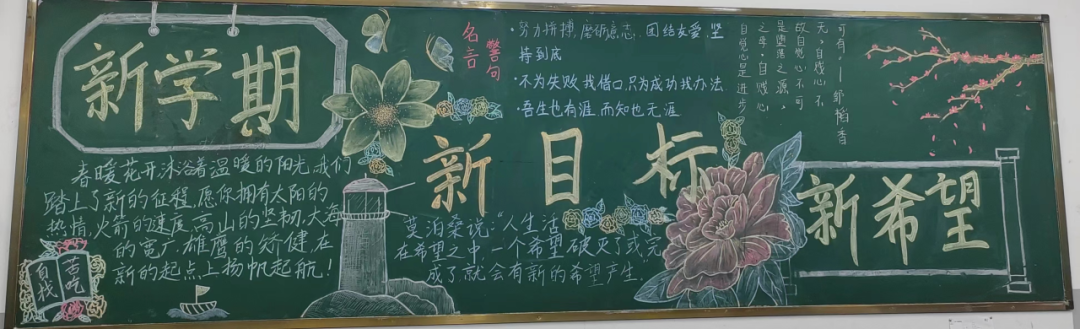 新学期
春暖花开沐浴着温暖的阳光,我们
踏上了新的征程,愿你拥有太阳的
热情,火箭的速度,高山的坚韧,大海
的宽广,雄鹰的矫健,在
新的起点上扬帆起航!
自找
苦吃
名言
警句
·努力拼搏,磨砺意志,团结友爱,坚
持到底
·不为失败找借口,只为成功找办法
·吾生也有涯,而知也无涯
新目标
莫泊桑说:“人生活
在希望之中,一个希望破灭了或完
成了就会有新的希望产生
自觉心是进步
之母,自贱心
是堕落之源,
故自觉心不可
无,自贱心不
可有。——邹韬奋
新希望